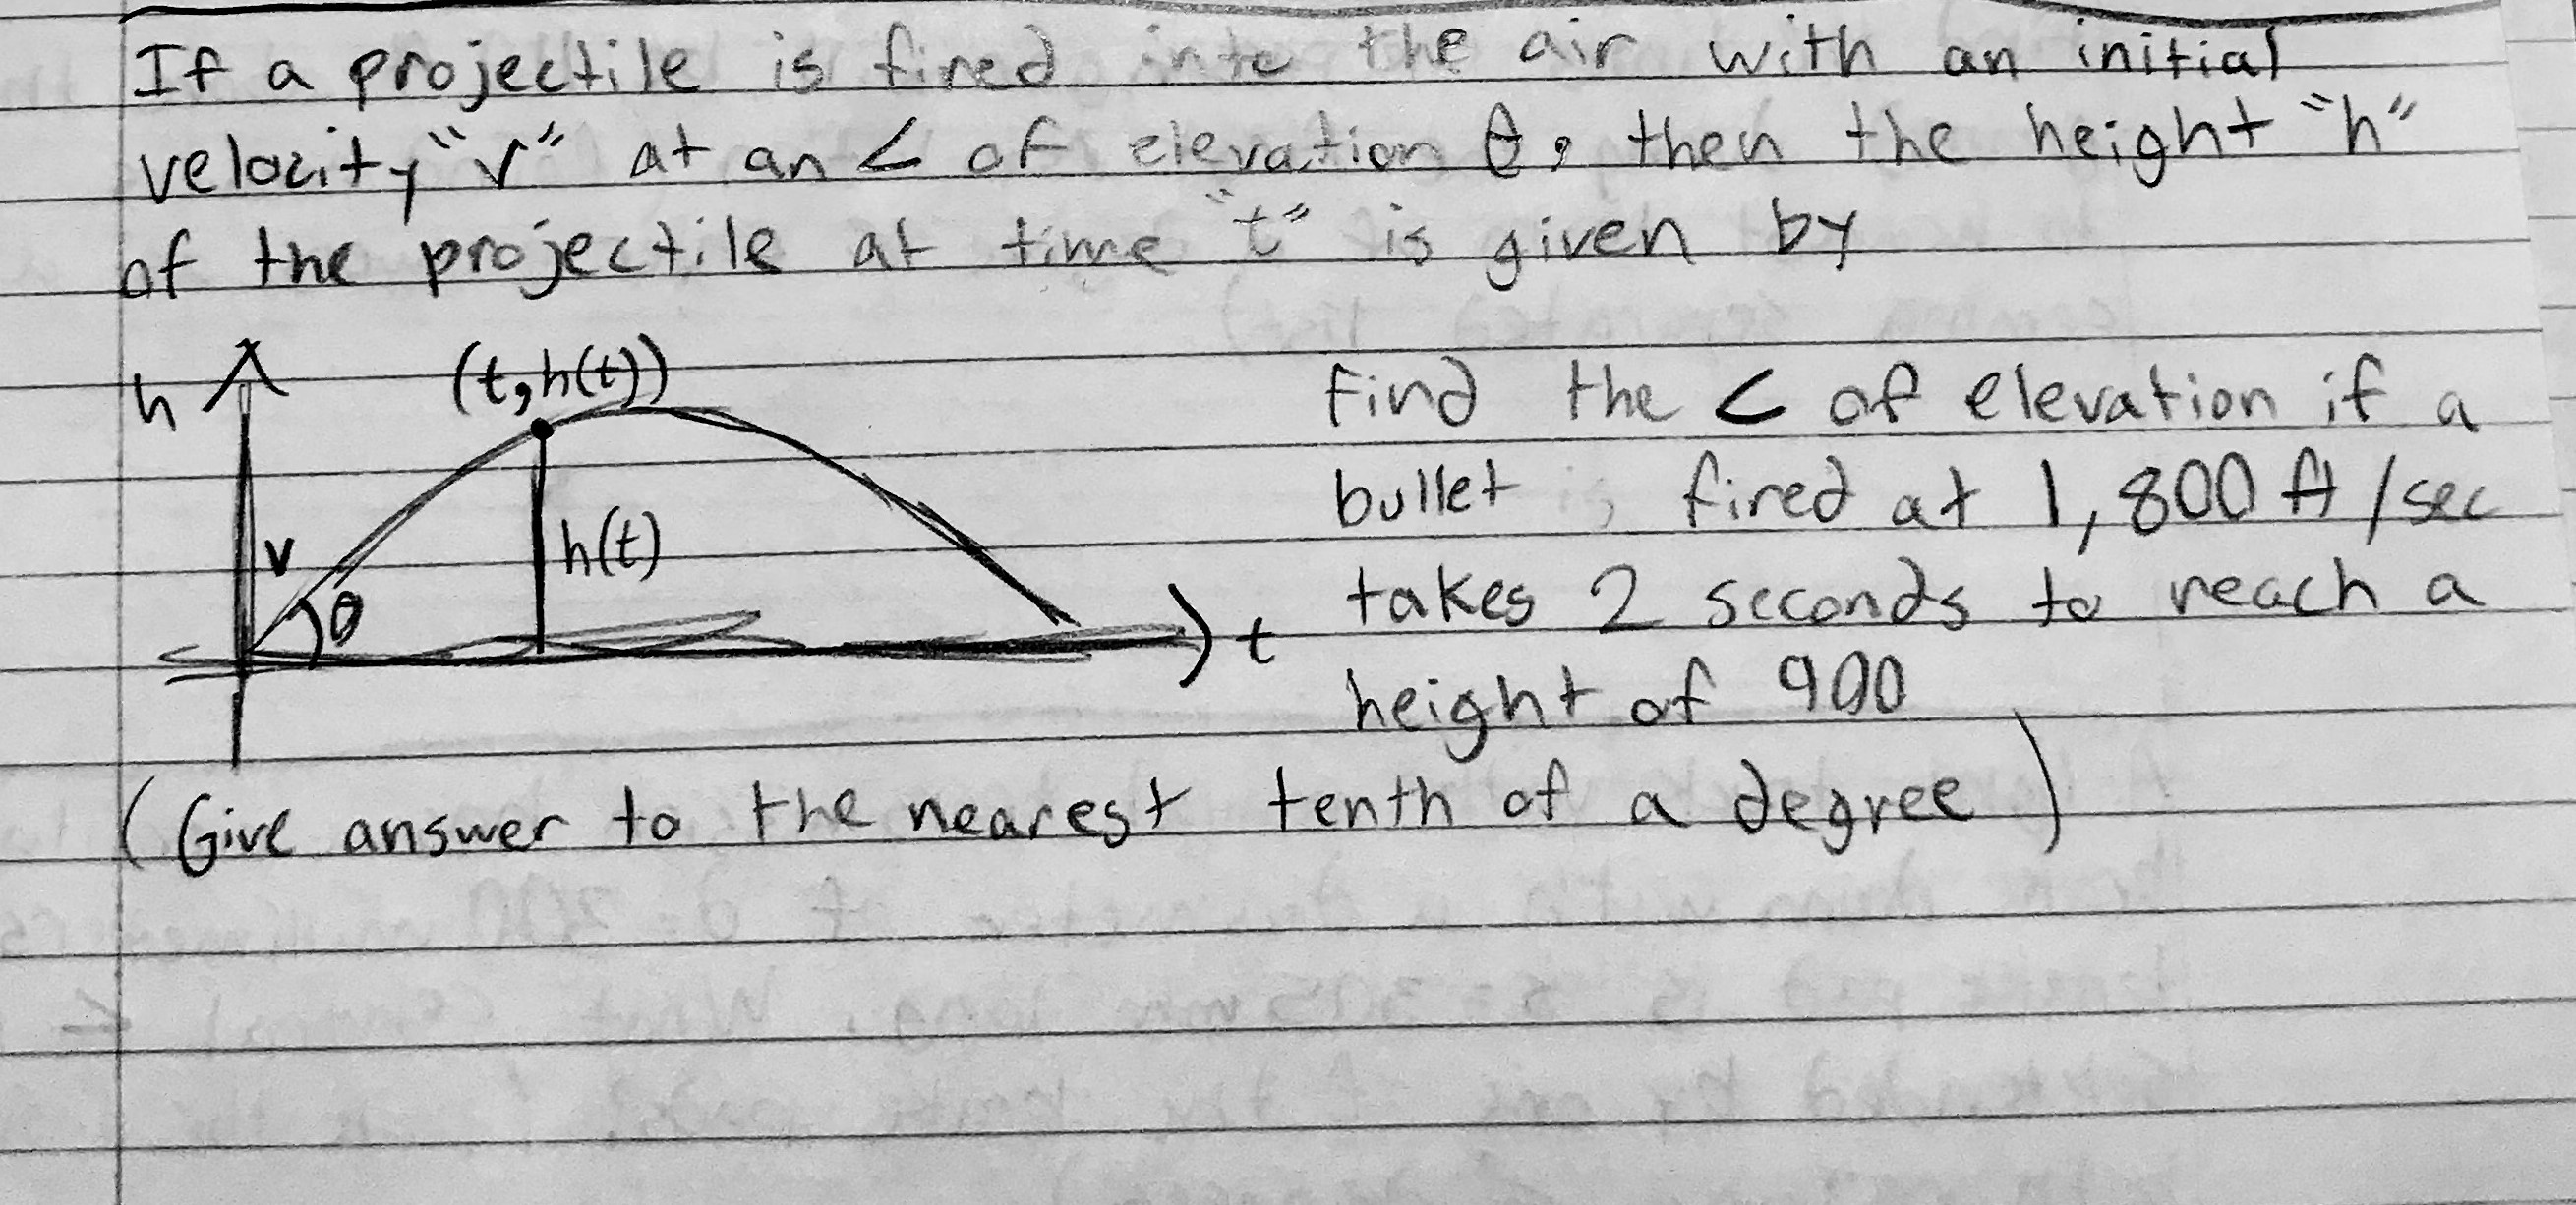 If a projectile is fired into the air with an initial
velocity "v" at an ∠ of elevation θ, then the height "h"
of the projectile at time "t" is given by
h
(t, h(t))
v
θ
h(t)
t
Find the ∠ of elevation if a
bullet is fired at 1,800 ft/sec
takes 2 seconds to reach a
height of 900
(Give answer to the nearest tenth of a degree)